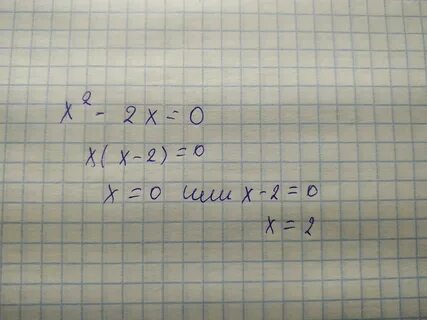 x² - 2x = 0
x(x-2) = 0
x = 0 или x-2 = 0
x = 2